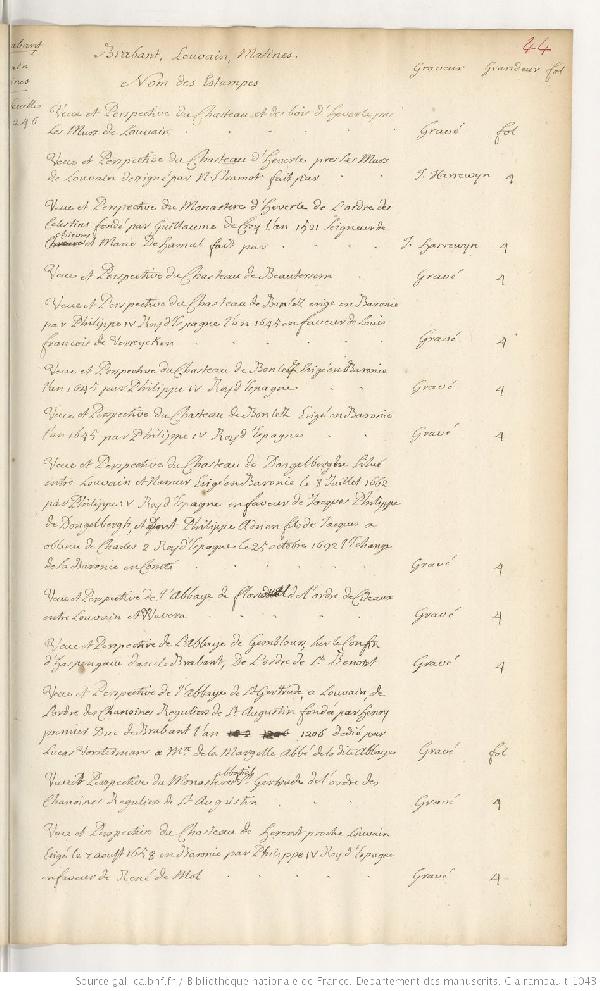 44
Brabant, Louvain, Malines.
Nom des Estampes
Graveur Grandeur fol
246
Veue et Perspective du Chasteau et des bois d'Heverle pres
les Murs de Louvain Gravé fol
Veue et Perspective du Chasteau d'Heverle pres les Murs
de Louvain designé par N. Stramot fait par J. Harrewyn 4
Veue et Perspective du Monastere d'Heverle de L'ordre des
Celestins fondé par Guillaume de Croy l'an 1521 Seigneur de
Chievres et Marie De Hamal fait par J. Harrewyn 4
Veue et Perspective du Chasteau de Beautersem Gravé 4
Veue et Perspective du Chasteau de erigé en Baronie
par Philippe IV Roy d'Espagne l'an 1645 en faveur de Louis
francois de Verreycken Gravé 4
Veue et Perspective du Chasteau de Bonleft Erigé en Baronie
l'an 1645 par Philippe IV Roy d'Espagne Gravé 4
Veue et Perspective du Chasteau de Bonleth Erigé en Baronie
l'an 1645 par Philippe IV Roy d'Espagne Gravé 4
Veue et Perspective du Chasteau de Dongelberghe situé
entre Louvain et Namur Erigé en Baronie le 8 Juillet 1662
par Philippe IV Roy d'Espagne en faveur de Jacques Philippe
de Dongelbergh, et dont Philippe Adrian fils de Jacques a
obtenu de Charles 2 Roy d'Espagne le 25 octobre 1692 l'Echange
de la Baronie en Comté Gravé 4
Veue et Perspective de l'Abbaye de de l'ordre de Citeaux
entre Louvain et Wavera Gravé 4
Veue et Perspective de L'Abbaye de Gemblours, sur le Confin
d'Haspengauw dans le Brabant, De L'ordre de St Benoist Gravé 4
Veue et Perspective de l'Abbaye de Ste Gertrude a Louvain de
l'ordre des Chanoines Reguliers de St Augustin fondé par Henry
premier Duc de Brabant l'an 1206 dedié par
Lucas Vorstermans a Mr. de la Margelle Abbé de la dite Abbaye Gravé fol
Veue et Perspective du Monastere abbatial Ste Gertrude de l'ordre des
Chanoines Reguliers de St Augustin Gravé 4
Veue et Perspective du Chasteau de Herent proche Louvain
Erigé le 7 aoust 1658 en Baronie par Philippe IV Roy d'Espagne
en faveur de René de Mol Gravé 4
Source gallica.bnf.fr / Bibliothèque nationale de France. Département des manuscrits. Clairambault 1043